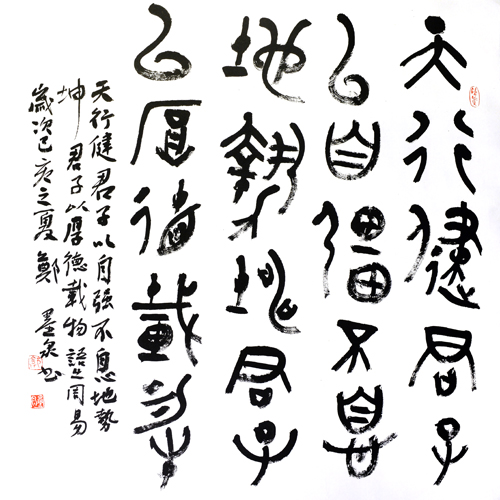 天行健君子
以自强不息
地勢坤君子
以厚德載物
天行健君子以自强不息地勢
坤君子以厚德載物語出周易
歲次己亥之夏鄭墨泉书